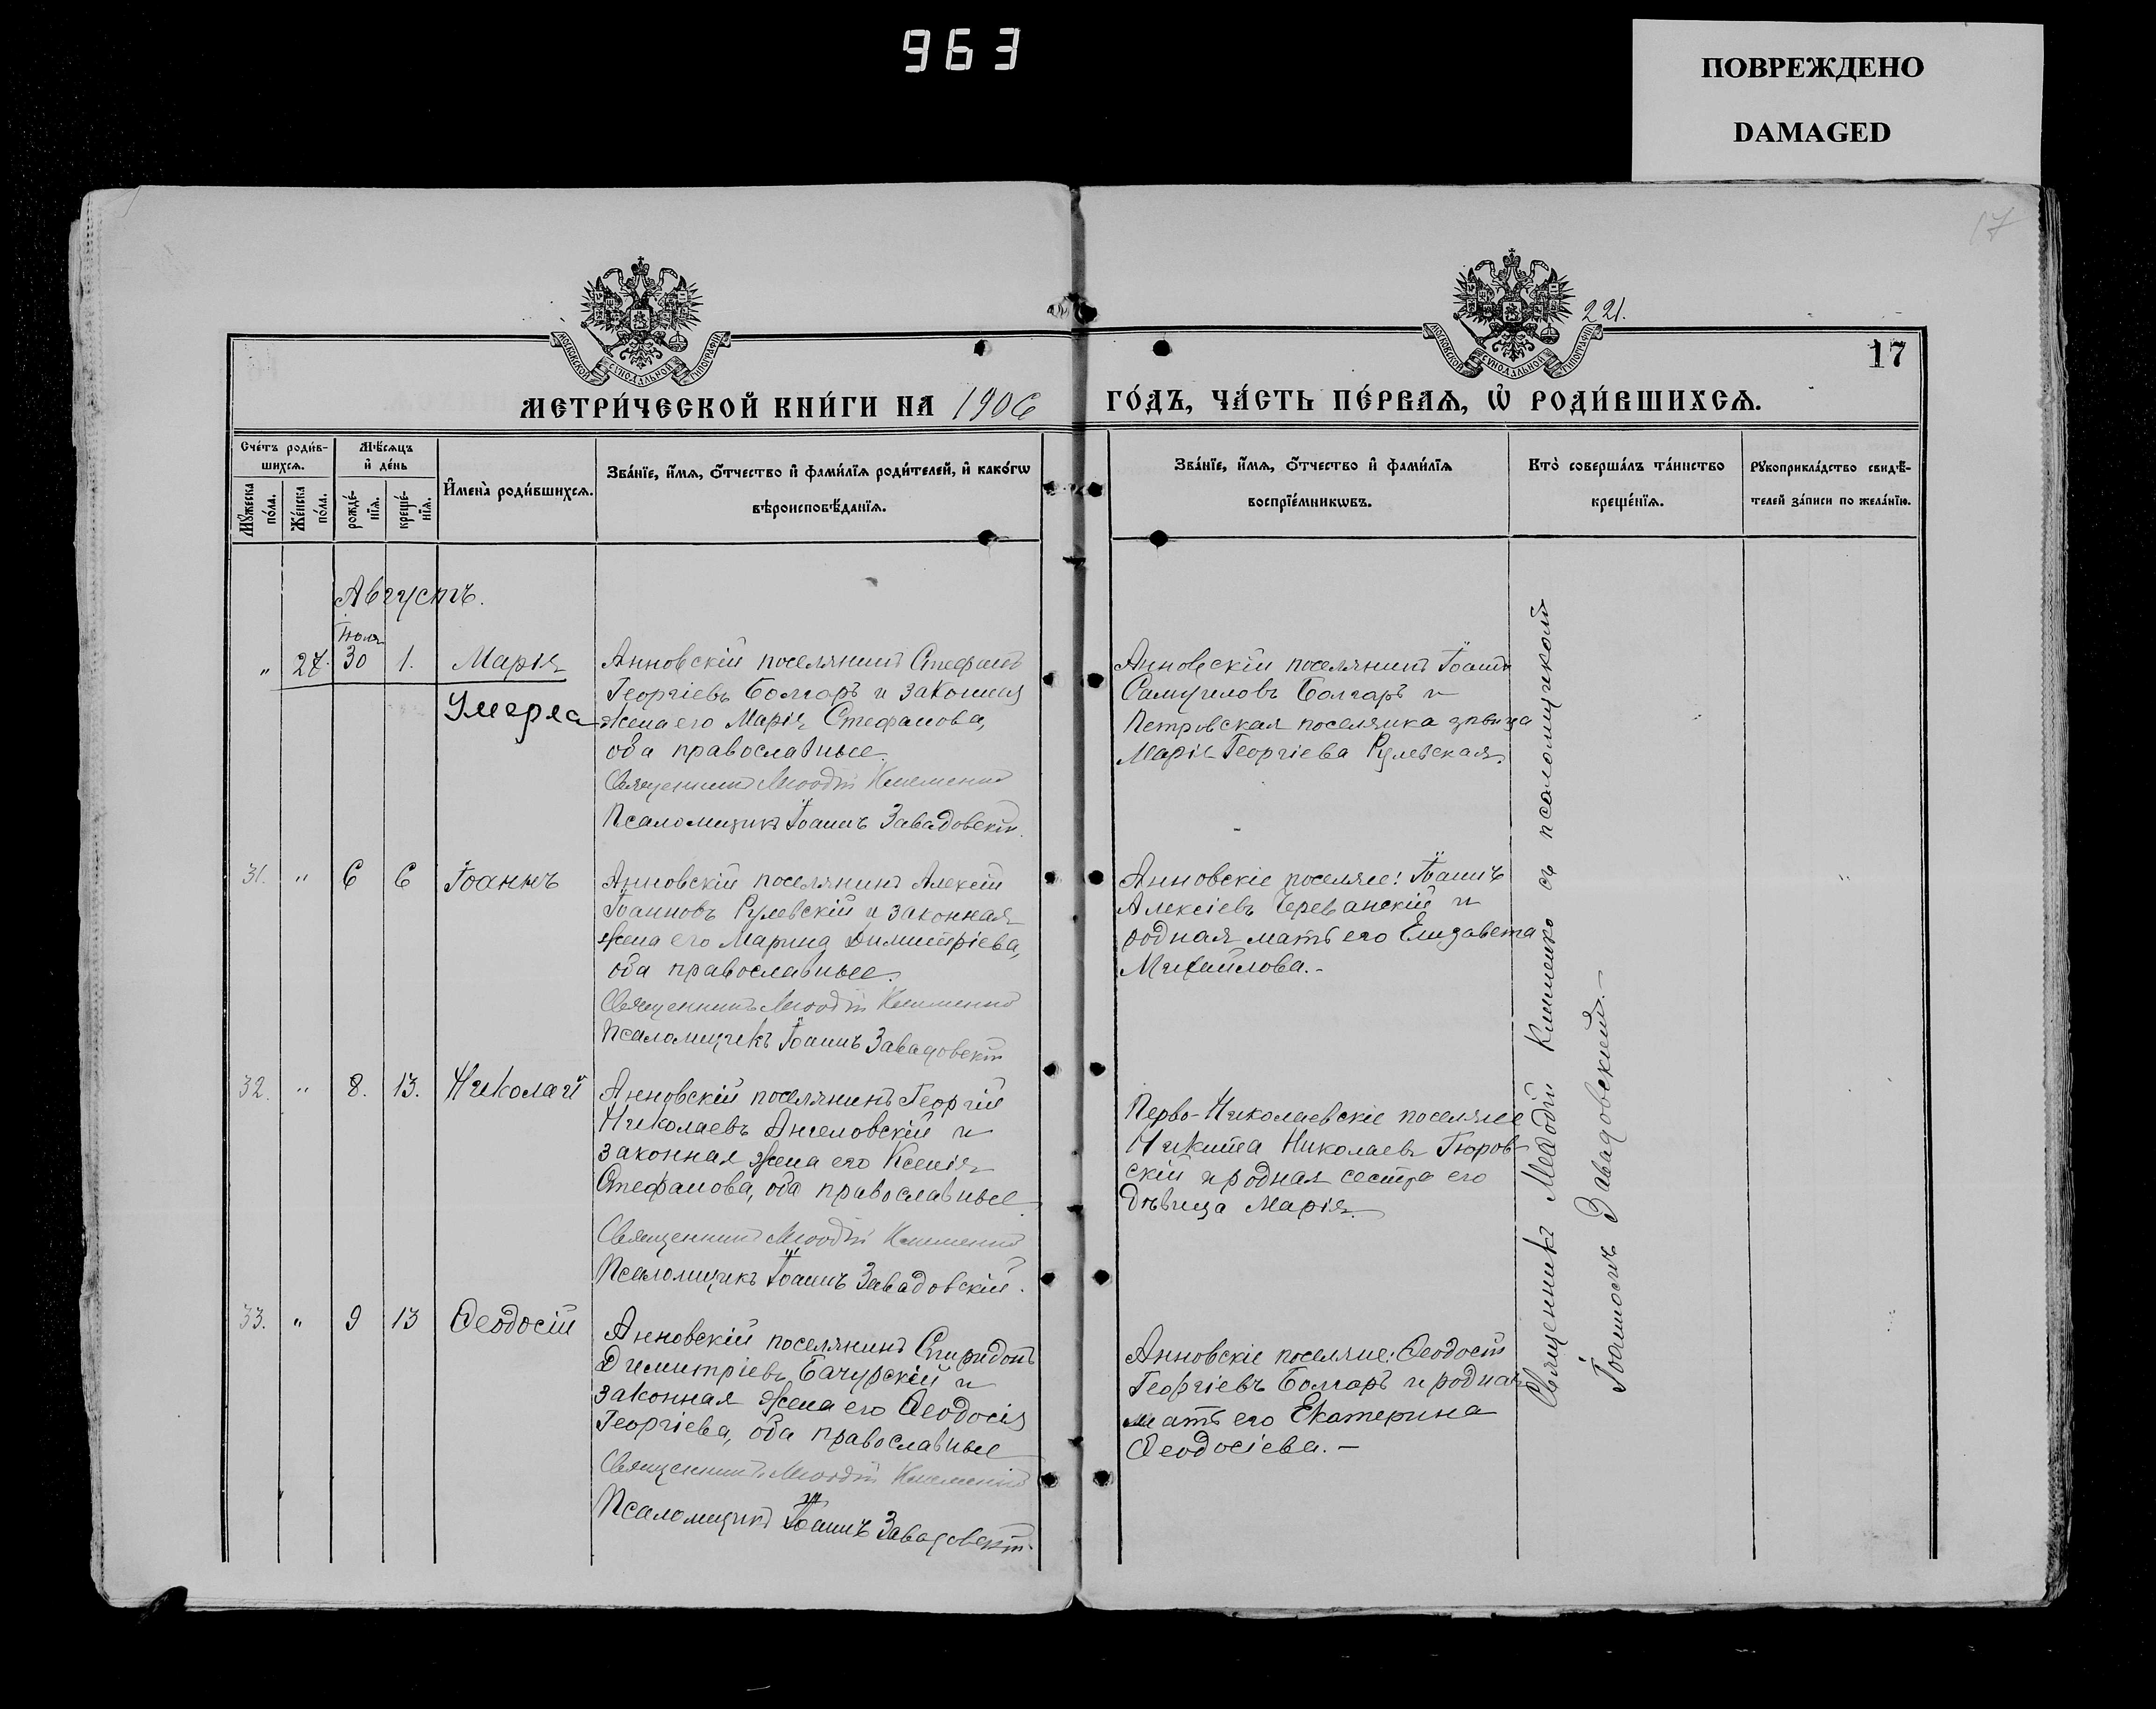 963
ПОВРЕЖДЕНО
DAMAGED
17
221.
17
МОСКОВСКОЙ СѴНОДАЛЬНОЙ ТИПОГРАФІИ
МОСКОВСКОЙ СѴНОДАЛЬНОЙ ТИПОГРАФІИ
МЕТРИ́ЧЕСКОЙ КНИ́ГИ НА 1906 ГО́ДЪ, ЧА́СТЬ ПЕ́РВАѦ, Ѡ҆ РОДИ́ВШИХСѦ.
Сче́тъ роди́в-
шихсѧ.
Мѣ́сѧцъ
и҆ де́нь
Мꙋ́жеска
по́ла.
Же́нска
по́ла.
рожде́-
нїѧ.
креще́-
нїѧ.
И҆мена̀ роди́вшихсѧ.
Зва́нїе, и҆́мѧ, ѻ҆́тчество и҆ фами́лїѧ роди́телей, и҆ како́гѡ
вѣроисповѣ́данїѧ.
Зва́нїе, и҆́мѧ, ѻ҆́тчество и҆ фами́лїѧ
воспрїе́мникѡвъ.
Кто̀ соверша́лъ та́инство
креще́нїѧ.
Рꙋкоприкла́дство свидѣ́-
телей за́писи по жела́нїю.
Августъ.
Іюля
" 27. 30 1. Марія
Умерла
Анновскій поселянинъ Стефанъ
Георгіевъ Болгаръ и законная
жена его Марія Стефанова,
оба православные.
Священникъ Меѳодій Клименко
Псаломщикъ Іоаннъ Завадовскій.
Анновскій поселянинъ Іоаннъ
Самуиловъ Болгаръ и
Петровская поселянка дѣвица
Марія Георгіева Рулевская.
31. " 6 6 Іоаннъ
Анновскій поселянинъ Алексій
Іоанновъ Рулевскій и законная
жена его Марина Димитріева,
оба православные.
Священникъ Меѳодій Клименко
Псаломщикъ Іоаннъ Завадовскій
Анновскіе поселяне: Іоаннъ
Алексіевъ Череванскій и
родная мать его Елизавета
Михайлова.-
32. " 8. 13. Николай
Анновскій поселянинъ Георгій
Николаевъ Ангеловскій и
законная жена его Ксенія
Стефанова, оба православные.
Священникъ Меѳодій Клименко
Псаломщикъ Іоаннъ Завадовскій.
Перво-Николаевскіе поселяне
Никита Николаевъ Гюров-
скій и родная сестра его
дѣвица Марія.
33. " 9 13 Ѳеодосій
Анновскій поселянинъ Спиридонъ
Димитріевъ Бачурскій и
законная жена его Ѳеодосія
Георгіева, оба православные
Священникъ Меѳодій Клименко
Псаломщикъ Іоаннъ Завадовскій.
Анновскіе поселяне: Ѳеодосій
Георгіевъ Болгаръ и родная
мать его Екатерина
Ѳеодосіева.-
Священникъ Меѳодій Клименко съ псаломщикомъ
Іоанномъ Завадовскимъ.-